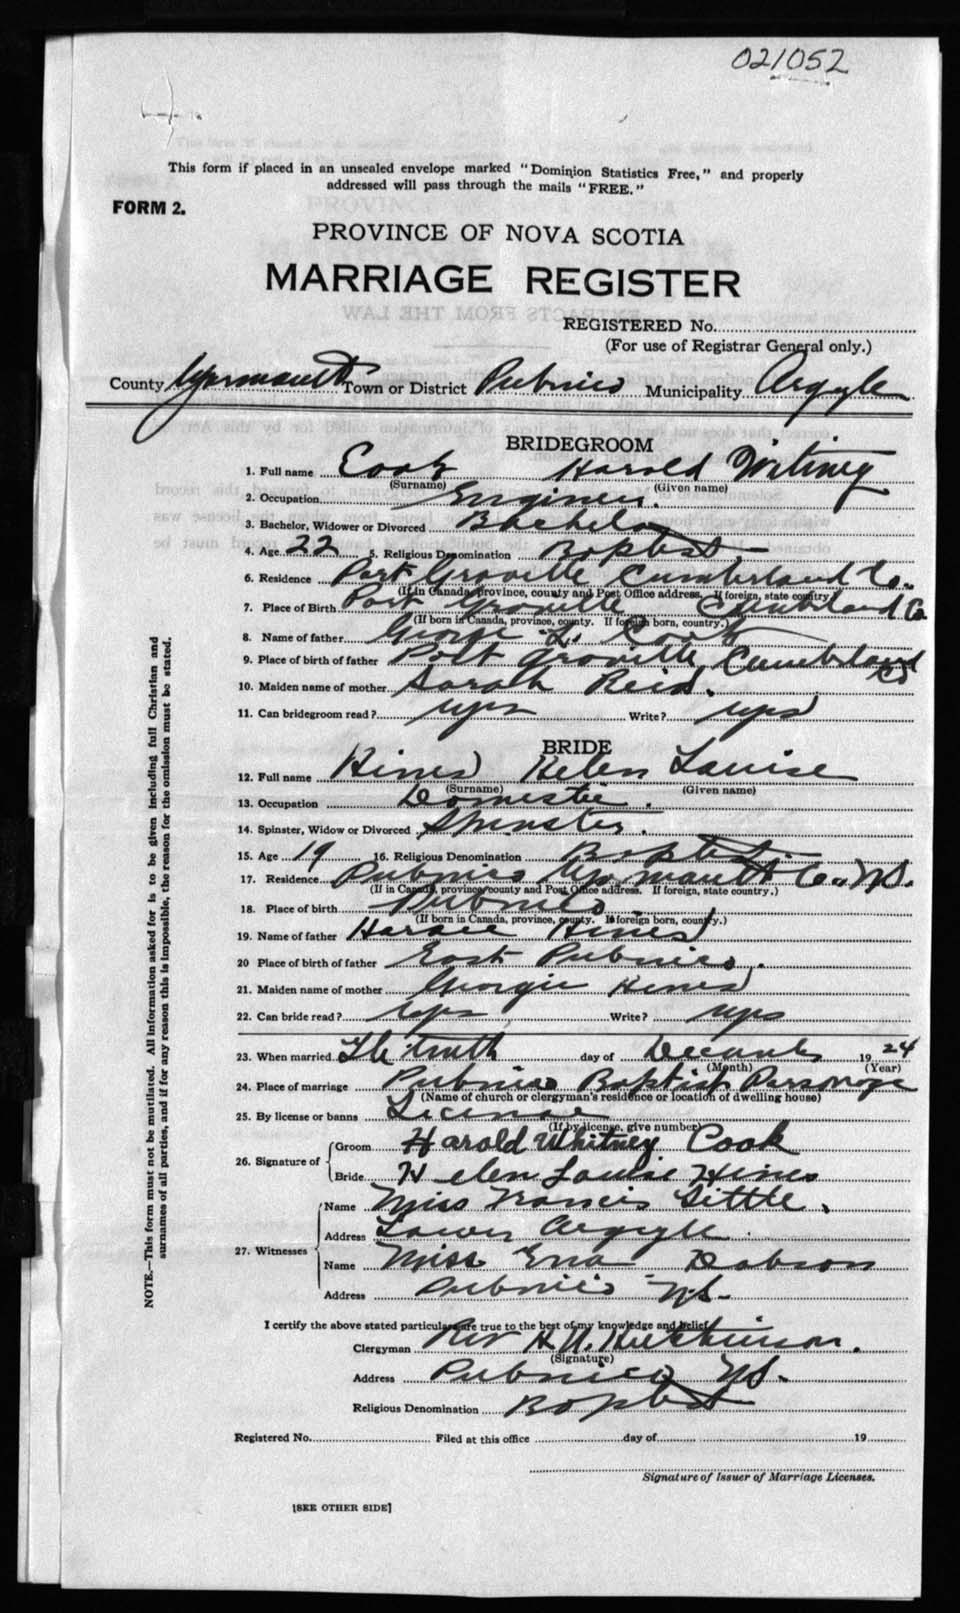 021052
This form if placed in an unsealed envelope marked "Dominion Statistics Free," and properly
addressed will pass through the mails "FREE."
FORM 2.
PROVINCE OF NOVA SCOTIA
MARRIAGE REGISTER
REGISTERED No.
(For use of Registrar General only.)
County Yarmouth Town or District Pubnico Municipality Argyle
BRIDEGROOM
1. Full name Cook Harold Witney
(Surname) (Given name)
2. Occupation Engineer.
3. Bachelor, Widower or Divorced Bachelor
4. Age 22 5. Religious Denomination Baptist.-
6. Residence Port Groville Cumberland Co.
(If in Canada, province, county and Post Office address. If foreign, state country
7. Place of Birth Port Groville Cumberland Co
(If born in Canada, province, county. If foreign born, country.)
8. Name of father George L. Cook
9. Place of birth of father Port Groville, Cumberland Co
10. Maiden name of mother Sarah Reid.
11. Can bridegroom read? yes Write? yes
BRIDE
12. Full name Hines Helen Louise
(Surname) (Given name)
13. Occupation Domestic.
14. Spinster, Widow or Divorced Spinster.
15. Age 19 16. Religious Denomination Baptist
17. Residence Pubnico Yarmouth Co. N.S.
(If in Canada, province/county and Post Office address. If foreign, state country.)
18. Place of birth Pubnico
(If born in Canada, province, county. If foreign born, country.)
19. Name of father Horace Hines
20 Place of birth of father East Pubnico.
21. Maiden name of mother Georgie Hines
22. Can bride read? Yes Write? yes
23. When married The tenth day of December 1924
(Month) (Year)
24. Place of marriage Pubnico Baptist Parsonage
(Name of church or clergyman's residence or location of dwelling house)
25. By license or banns License
(If by license, give number)
26. Signature of { Groom Harold Whitney Cook
Bride Helen Louise Hines
27. Witnesses { Name Miss Francis Little.
Address Lower Argyle
Name Miss Ena Dobson
Address Pubnico N.S.-
I certify the above stated particulars are true to the best of my knowledge and belief.
Clergyman Rev H. N. Hutchinson.
(Signature)
Address Pubnico N.S.
Religious Denomination Baptist
Registered No. Filed at this office day of 19
Signature of Issuer of Marriage Licenses.
[SEE OTHER SIDE]
NOTE.—This form must not be mutilated. All information asked for is to be given including full Christian and
surnames of all parties, and if for any reason this is impossible, the reason for the omission must be stated.